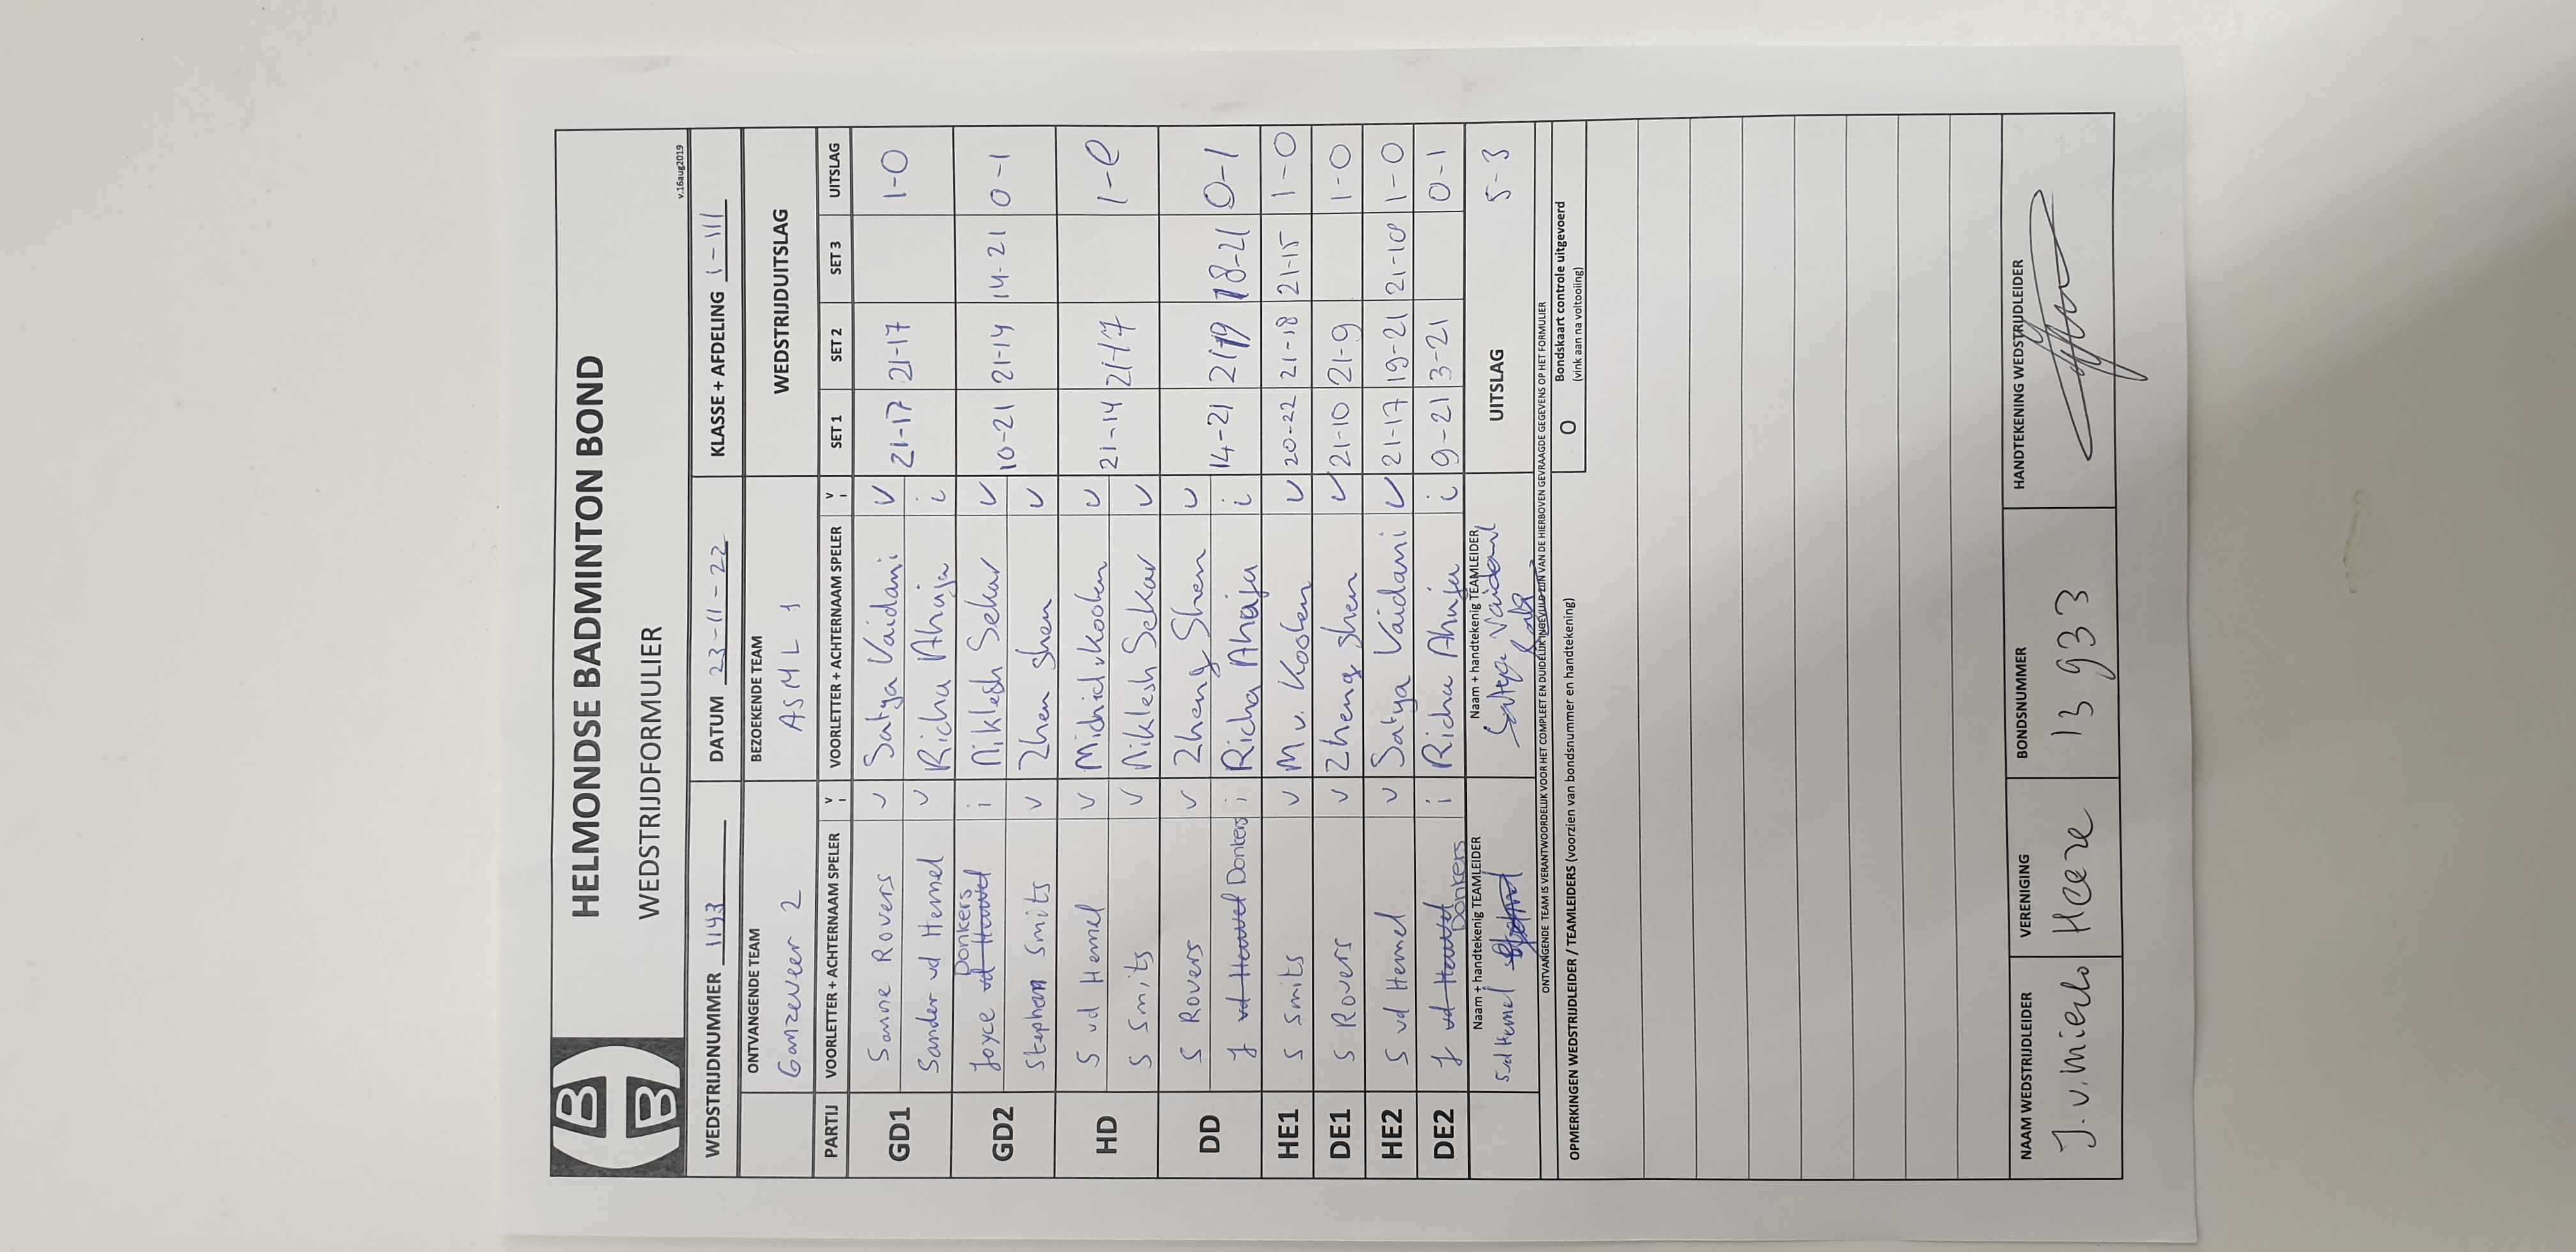 HELMONDSE BADMINTON BOND
WEDSTRIJDFORMULIER
v.16aug2019
WEDSTRIJDNUMMER 1143 DATUM 23-11-22 KLASSE + AFDELING 1-111
ONTVANGENDE TEAM BEZOEKENDE TEAM WEDSTRIJDUITSLAG
Ganzeveer 2 ASML 1
PARTIJ VOORLETTER + ACHTERNAAM SPELER V I VOORLETTER + ACHTERNAAM SPELER V I SET 1 SET 2 SET 3 UITSLAG
GD1 Sanne Rovers v Satya Vaidani v 21-17 21-17 1-0
Sander vd Hemel v Richa Ahuja i
GD2 Joyce vd Heuvel Donkers i Niklesh Sekar v 10-21 21-14 14-21 0-1
Stephan Smits v Zhen Shen v
HD S vd Hemel v Michiel v Kooten v 21-14 21-17 1-0
S Smits v Niklesh Sekar v
DD S Rovers v Zheng Shen v 14-21 21-19 18-21 0-1
J vd Heuvel Donkers i Richa Ahuja i
HE1 S Smits v M v. Kooten v 20-22 21-18 21-15 1-0
DE1 S Rovers v Zheng Shen v 21-10 21-9 1-0
HE2 S vd Hemel v Satya Vaidani v 21-17 19-21 21-10 1-0
DE2 J vd Heuvel Donkers i Richa Ahuja i 9-21 3-21 0-1
Naam + handtekenig TEAMLEIDER Naam + handtekenig TEAMLEIDER UITSLAG 5-3
S vd Hemel Satya Vaidani
ONTVANGENDE TEAM IS VERANTWOORDELIJK VOOR HET COMPLEET EN DUIDELIJK INGEVULD ZIJN VAN DE HIERBOVEN GEVRAAGDE GEGEVENS OP HET FORMULIER
OPMERKINGEN WEDSTRIJDLEIDER / TEAMLEIDERS (voorzien van bondsnummer en handtekening)
O Bondskaart controle uitgevoerd
(vink aan na voltooiing)
NAAM WEDSTRIJDLEIDER VERENIGING BONDSNUMMER HANDTEKENING WEDSTRIJDLEIDER
J. v. Mierlo Heeze 13 933